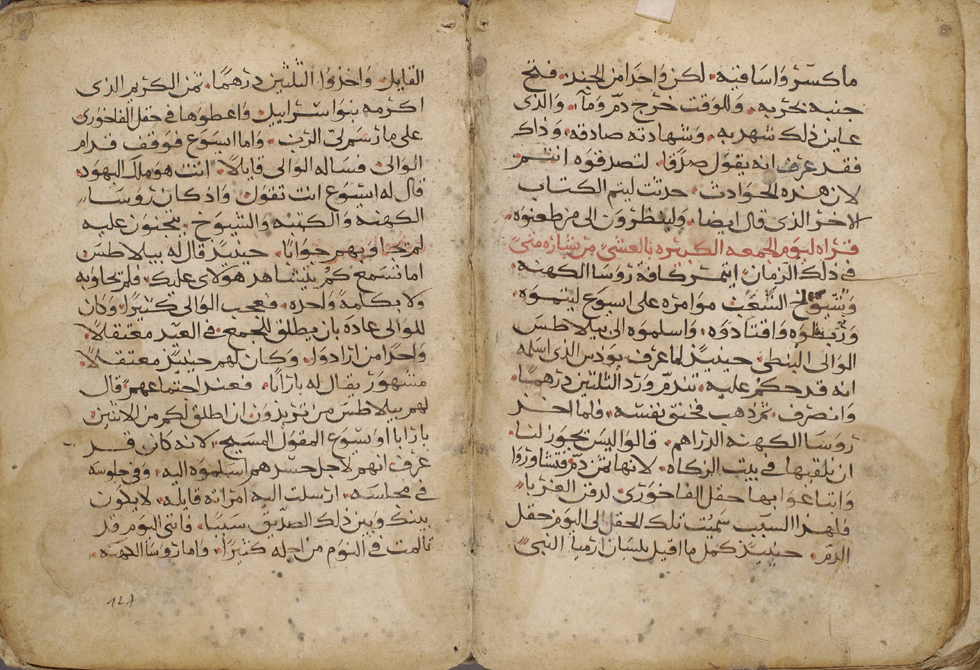 ما كسرو اساقيه. لكن واحدا من الجند فتح
جنبه بحربه. وللوقت خرج دم وما. والذى
عاين ذلك شهد به. وشهادته صادقه. وذاك
فقد عرف انه يقول صدقا. لتصدقوه انتم.
لان هذه الحوادث. حدثت ليتم الكتاب
الاخر الذى قال ايضا. ولينظرون الى من طعنوه.
قراه ليوم الجمعه الكبيره بالعشى من بشاره متى
فى ذلك الزمان. ايتمر كافة روسا الكهنه.
وشيوخ الشعب موامره على ايسوع ليميتوه.
وربطوه واقتادوه. واسلموه الى بيلاطس
الوالى البنطى. حينيذ لما عرف يودس الذى اسلمه
انه قد حكم عليه. تندم ورد الثلتين درهما.
وانصرف. ثم ذهب فخنق نفسه. فلما اخذ
روسا الكهنه الدراهم. قالوا ليس يجوز لنا.
ان نلقيها فى بيت الزكاه. لانها ثمن دم فتشاوروا
وابتاعوا بها حقل الفاخورى لدفن الغربا.
فلهذا السبب سميت تلك الحقل الى اليوم حقل
الدم. حينيذ كمل ما قيل بلسان ارميا النبى
القايل واخذوا الثلثين درهما. ثمن الكريم الذى
اكرمه بنوا سراييل واعطوها فى حقل الفاخورى
على ما رسم لى الرب. واما ايسوع فوقف قدام
الوالى فساله الوالى قايلا. انت هو ملك اليهود.
قال له ايسوع انت تقول. واذ كان روسا
الكهنه والكتبه والشيوخ. يجتنون عليه
لم يجاوبهم جوابا. حينيذ قال له بيلاطس
اما تسمع كم يشاهد هولاى عليك. فلم يجاوبه
ولا بكلمة واحده. فعجب الوالى كثيرا. وكان
للوالى عادة بان يطلق للجمع فى العيد معتقلا.
واحدا من ارادوا. وكان لهم حينيذ معتقلا
مشهور يقال له بارابا. فعند اجتماعهم قال
لهم بيلاطس من تريدون ان اطلق لكم من الاثنين
بارابا او ايسوع المقول المسيح. لانه كان قد
عرف انهم لاجل حسدهم اسلموه اليه. وفى جلوسه
فى مجلسه. ارسلت اليه امراته قايله. لا يكون
بينك وبين ذلك الصديق سببا. فاننى اليوم قد
تالمت فى النوم من اجله كثيرا. واما روسا الكهنه
127